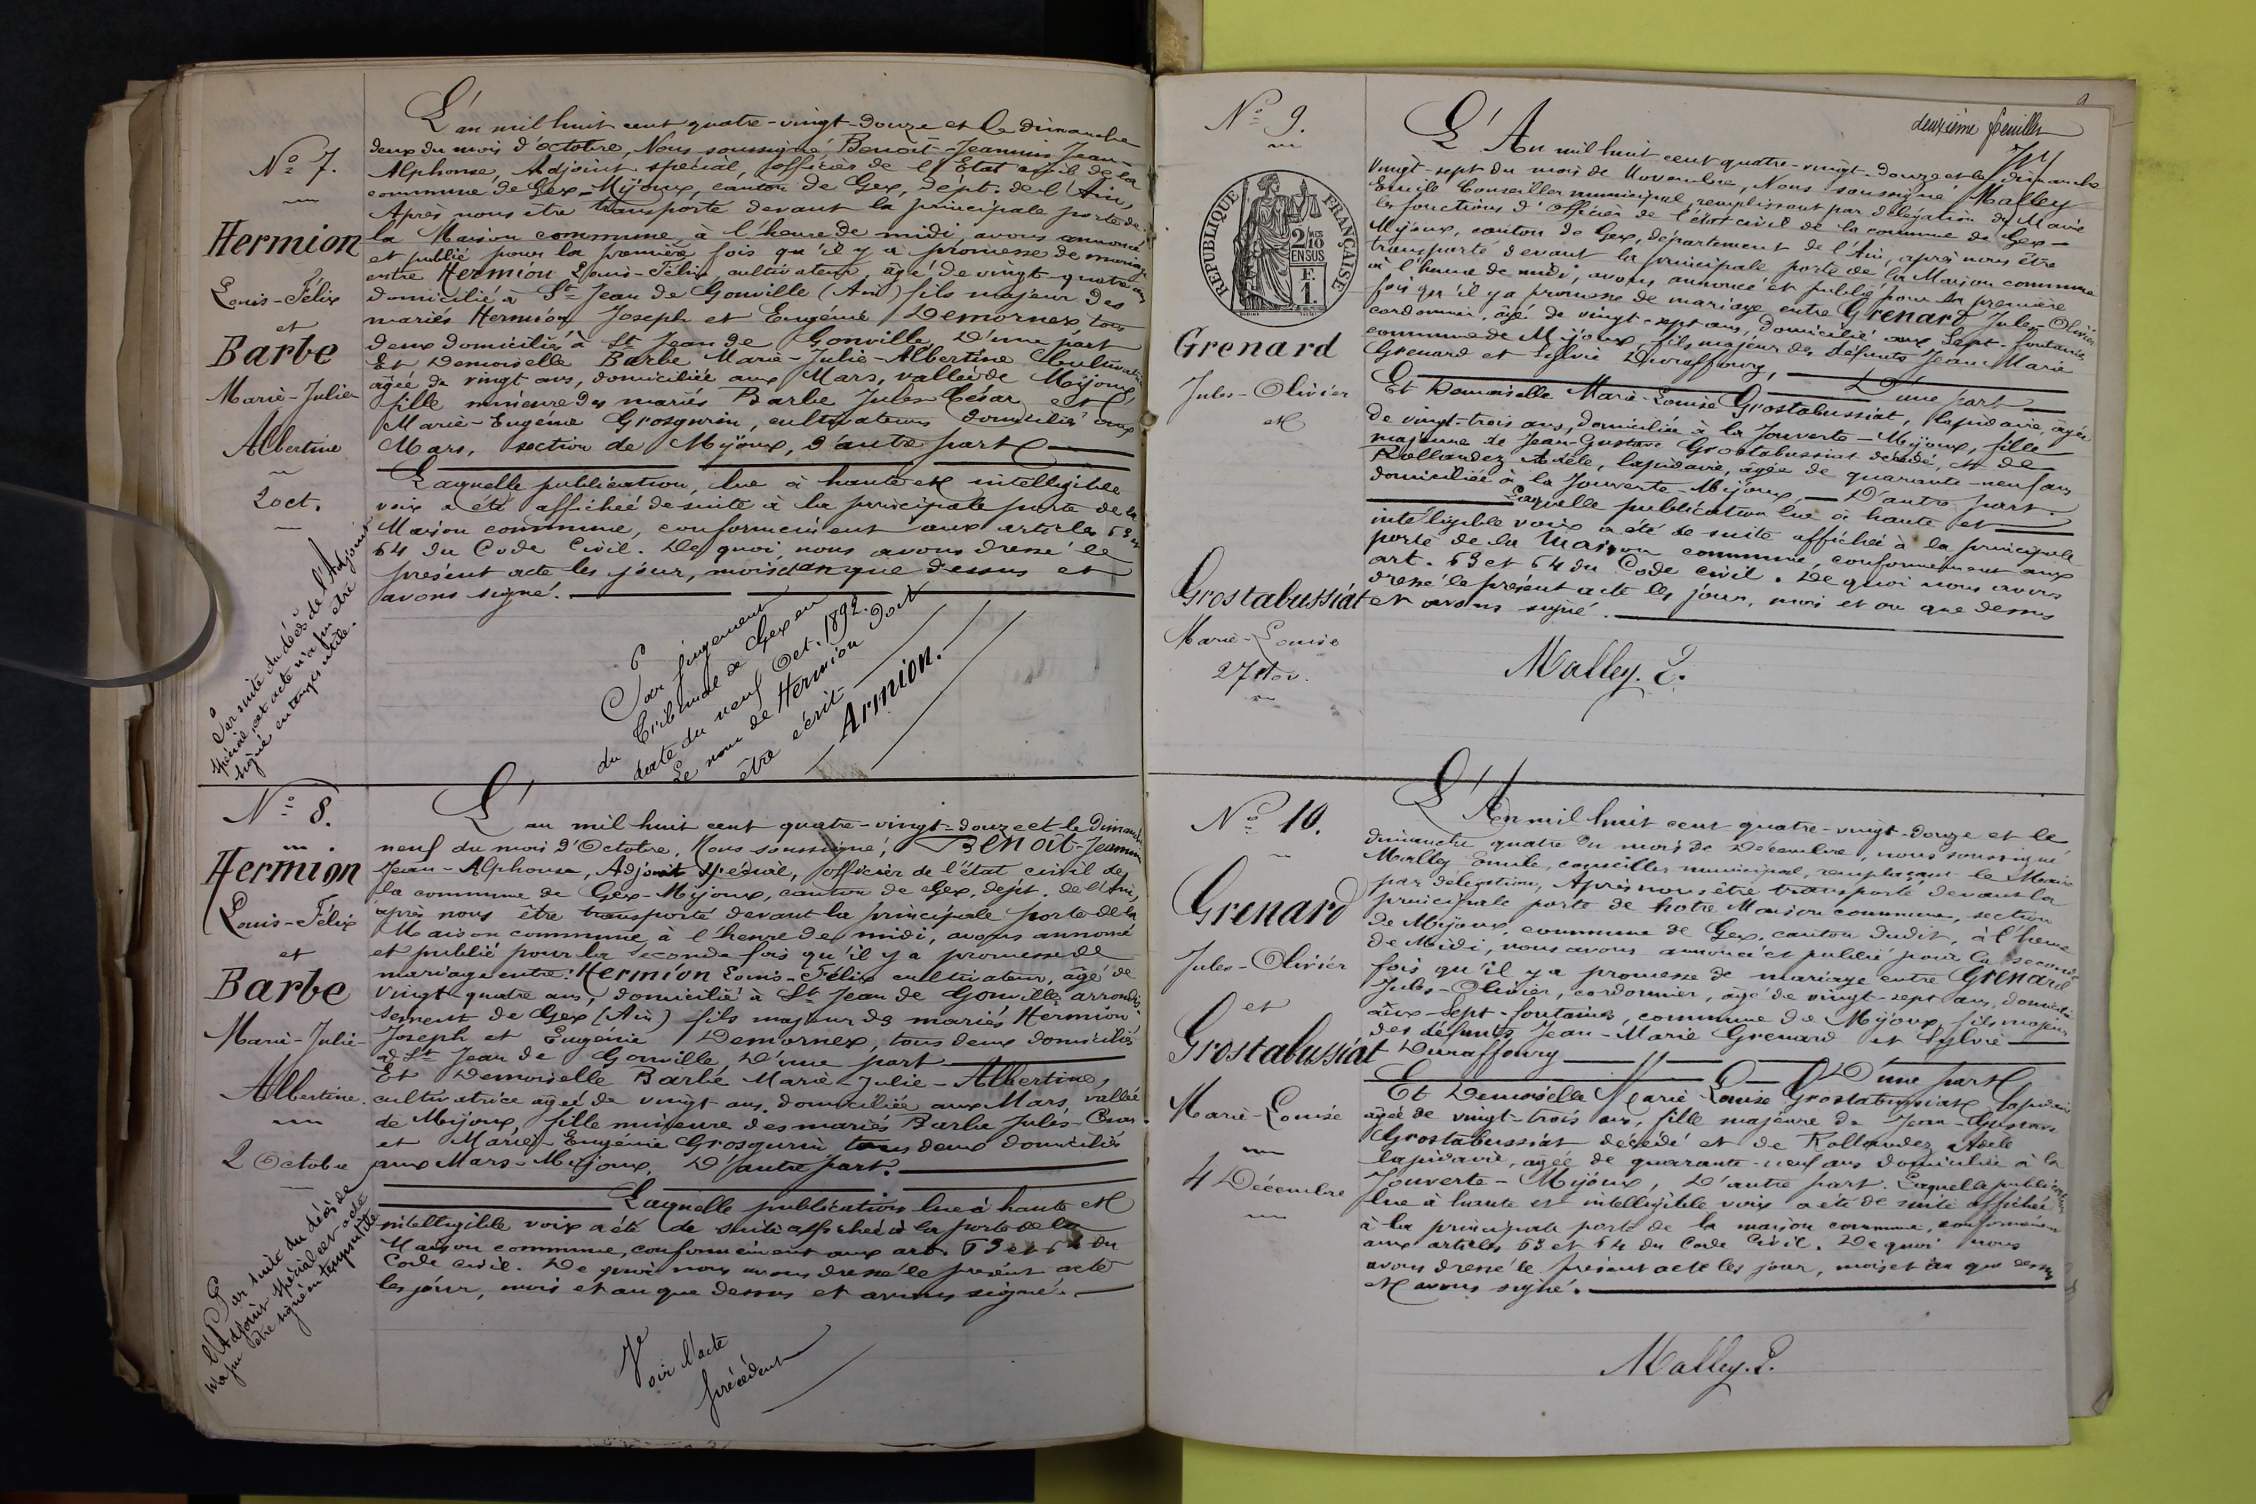 N° 7.
Hermion
Louis-Félix
et
Barbe
Marie-Julie
Albertine
2 oct.
Par suite du décès de l'Adjoint
spécial, cet acte n'a pu être
signé en temps utile.
L'an mil huit cent quatre-vingt-douze et le dimanche
deux du mois d'octobre, Nous soussigné Benoît-Jeannin Jean-
Alphonse, Adjoint spécial, officier de l'Etat civil de la
commune de Gex-Mijoux, canton de Gex, dépt. de l'Ain,
Après nous être transporté devant la principale porte de
la Maison commune à l'heure de midi avons annoncé
et publié pour la première fois qu'il y a promesse de mariage
entre Hermion Louis-Félix, cultivateur, âgé de vingt-quatre ans
domicilié à St Jean de Gonville (Ain) fils majeur des
mariés Hermion Joseph et Eugénie Demornex, tous
deux domiciliés à St Jean de Gonville, D'une part
Et Demoiselle Barbe Marie-Julie-Albertine Cultivatrice
âgée de vingt ans, domiciliée aux Mars, vallée de Mijoux
fille mineure des mariés Barbe Jules-César et
Marie-Eugénie Grosgurin, cultivateurs domiciliés aux
Mars, section de Mijoux, d'autre part
Laquelle publication, lue à haute et intelligible
voix a été affichée de suite à la principale porte de la
Maison commune, conformément aux articles 63 et
64 du Code Civil. De quoi, nous avons dressé le
présent acte les jour, mois et an que dessus et
avons signé.
Par jugement
du Tribunal de Gex en
date du neuf Oct. 1892.
Le nom de Hermion doit
être écrit
Armion.
N° 8.
Hermion
Louis-Félix
et
Barbe
Marie-Julie-
Albertine.
2 Octobre
Par suite du décès de
l'Adjoint spécial cet acte
n'a pu être signé en temps utile
L'an mil huit cent quatre-vingt-douze et le Dimanche
neuf du mois d'Octobre, Nous soussigné, Benoît-Jeannin
Jean-Alphonse, Adjoint Spécial, officier de l'état civil de
la commune de Gex-Mijoux, canton de Gex, dépt. de l'Ain,
après nous être transporté devant la principale porte de la
Maison commune à l'heure de midi, avons annoncé
et publié pour la seconde fois qu'il y a promesse de
mariage entre: Hermion Louis-Félix cultivateur, âgé de
vingt-quatre ans, domicilié à St Jean de Gonville arrondis-
sement de Gex (Ain) fils majeur des mariés Hermion
Joseph et Eugénie Demornex, tous deux domiciliés
à St Jean de Gonville, D'une part
Et Demoiselle Barbe Marie-Julie-Albertine,
cultivatrice âgée de vingt ans, domiciliée aux Mars, vallée
de Mijoux, fille mineure des mariés Barbe Jules-César
et Marie-Eugénie Grosgurin tous deux domiciliés
aux Mars-Mijoux, D'autre part.
Laquelle publication lue à haute et
intelligible voix a été de suite affichée à la porte de la
Maison commune, conformément aux art. 63 et 64 du
Code civil. De quoi nous avons dressé le présent acte
les jour, mois et an que dessus et avons signé.
Voir l'acte
précédent
deuxième feuillet
N° 9.
RÉPUBLIQUE FRANÇAISE
2/10
EN SUS
F.
1.
Grenard
Jules-Olivier
et
Grostabussiat
Marie-Louise
27 Nov.
L'An mil huit cent quatre-vingt-douze et le dimanche
vingt-sept du mois de Novembre, Nous soussigné Malley
Emile Conseiller municipal, remplissant par délégation du Maire
les fonctions d'Officier de l'état civil de la commune de Gex-
Mijoux, canton de Gex, département de l'Ain, après nous être
transporté devant la principale porte de la Maison commune
à l'heure de midi, avons annoncé et publié pour la première
fois qu'il y a promesse de mariage entre Grenard Jules-Olivier
cordonnier, âgé de vingt-sept ans, domicilié aux Sept-fontaines
commune de Mijoux, fils majeur des défunts Jean Marie
Grenard et Sylvie Duraffourg, D'une part
Et Demoiselle Marie-Louise Grostabussiat, lapidaire, âgée
de vingt-trois ans, domiciliée à la Jouverte-Mijoux, fille
majeure de Jean-Gustave Grostabussiat décédé, et de
Rollandez Adèle, lapidaire, âgée de quarante-neuf ans
domiciliée à la Jouverte-Mijoux, D'autre part.
Laquelle publication lue à haute et
inteligible voix a été de suite affichée à la principale
porte de la Maison commune, conformément aux
art. 63 et 64 du Code civil. De quoi nous avons
dressé le présent acte les jour, mois et an que dessus
et avons signé.
Malley. E.
N° 10.
Grenard
Jules-Olivier
et
Grostabussiat
Marie-Louise
4 Décembre
L'An mil huit cent quatre-vingt-douze et le
dimanche quatre du mois de Décembre, nous soussigné
Malley Emile, conseiller municipal, remplaçant le Maire
par délégation, Après nous être transporté devant la
principale porte de notre Maison commune, section
de Mijoux, commune de Gex, canton dudit, à l'heure
de Midi, nous avons annoncé et publié pour la seconde
fois qu'il y a promesse de mariage entre Grenard
Jules-Olivier, cordonnier, âgé de vingt-sept ans, domicilié
aux Sept-fontaines, commune de Mijoux, fils majeur
des défunts Jean-Marie Grenard et Sylvie
Duraffourg D'une part
Et Demoiselle Marie Louise Grostabussiat lapidaire
âgée de vingt-trois ans, fille majeure de Jean-Gustave
Grostabussiat décédé et de Rollandez Adèle
lapidaire, âgée de quarante-neuf ans domiciliée à la
Jouverte-Mijoux, D'autre part. Laquelle publication
lue à haute et intelligible voix a été de suite affichée
à la principale porte de la maison commune, conformément
aux articles 63 et 64 du Code Civil. De quoi nous
avons dressé le présent acte les jour, mois et an que dessus
et avons signé.
Malley. E.